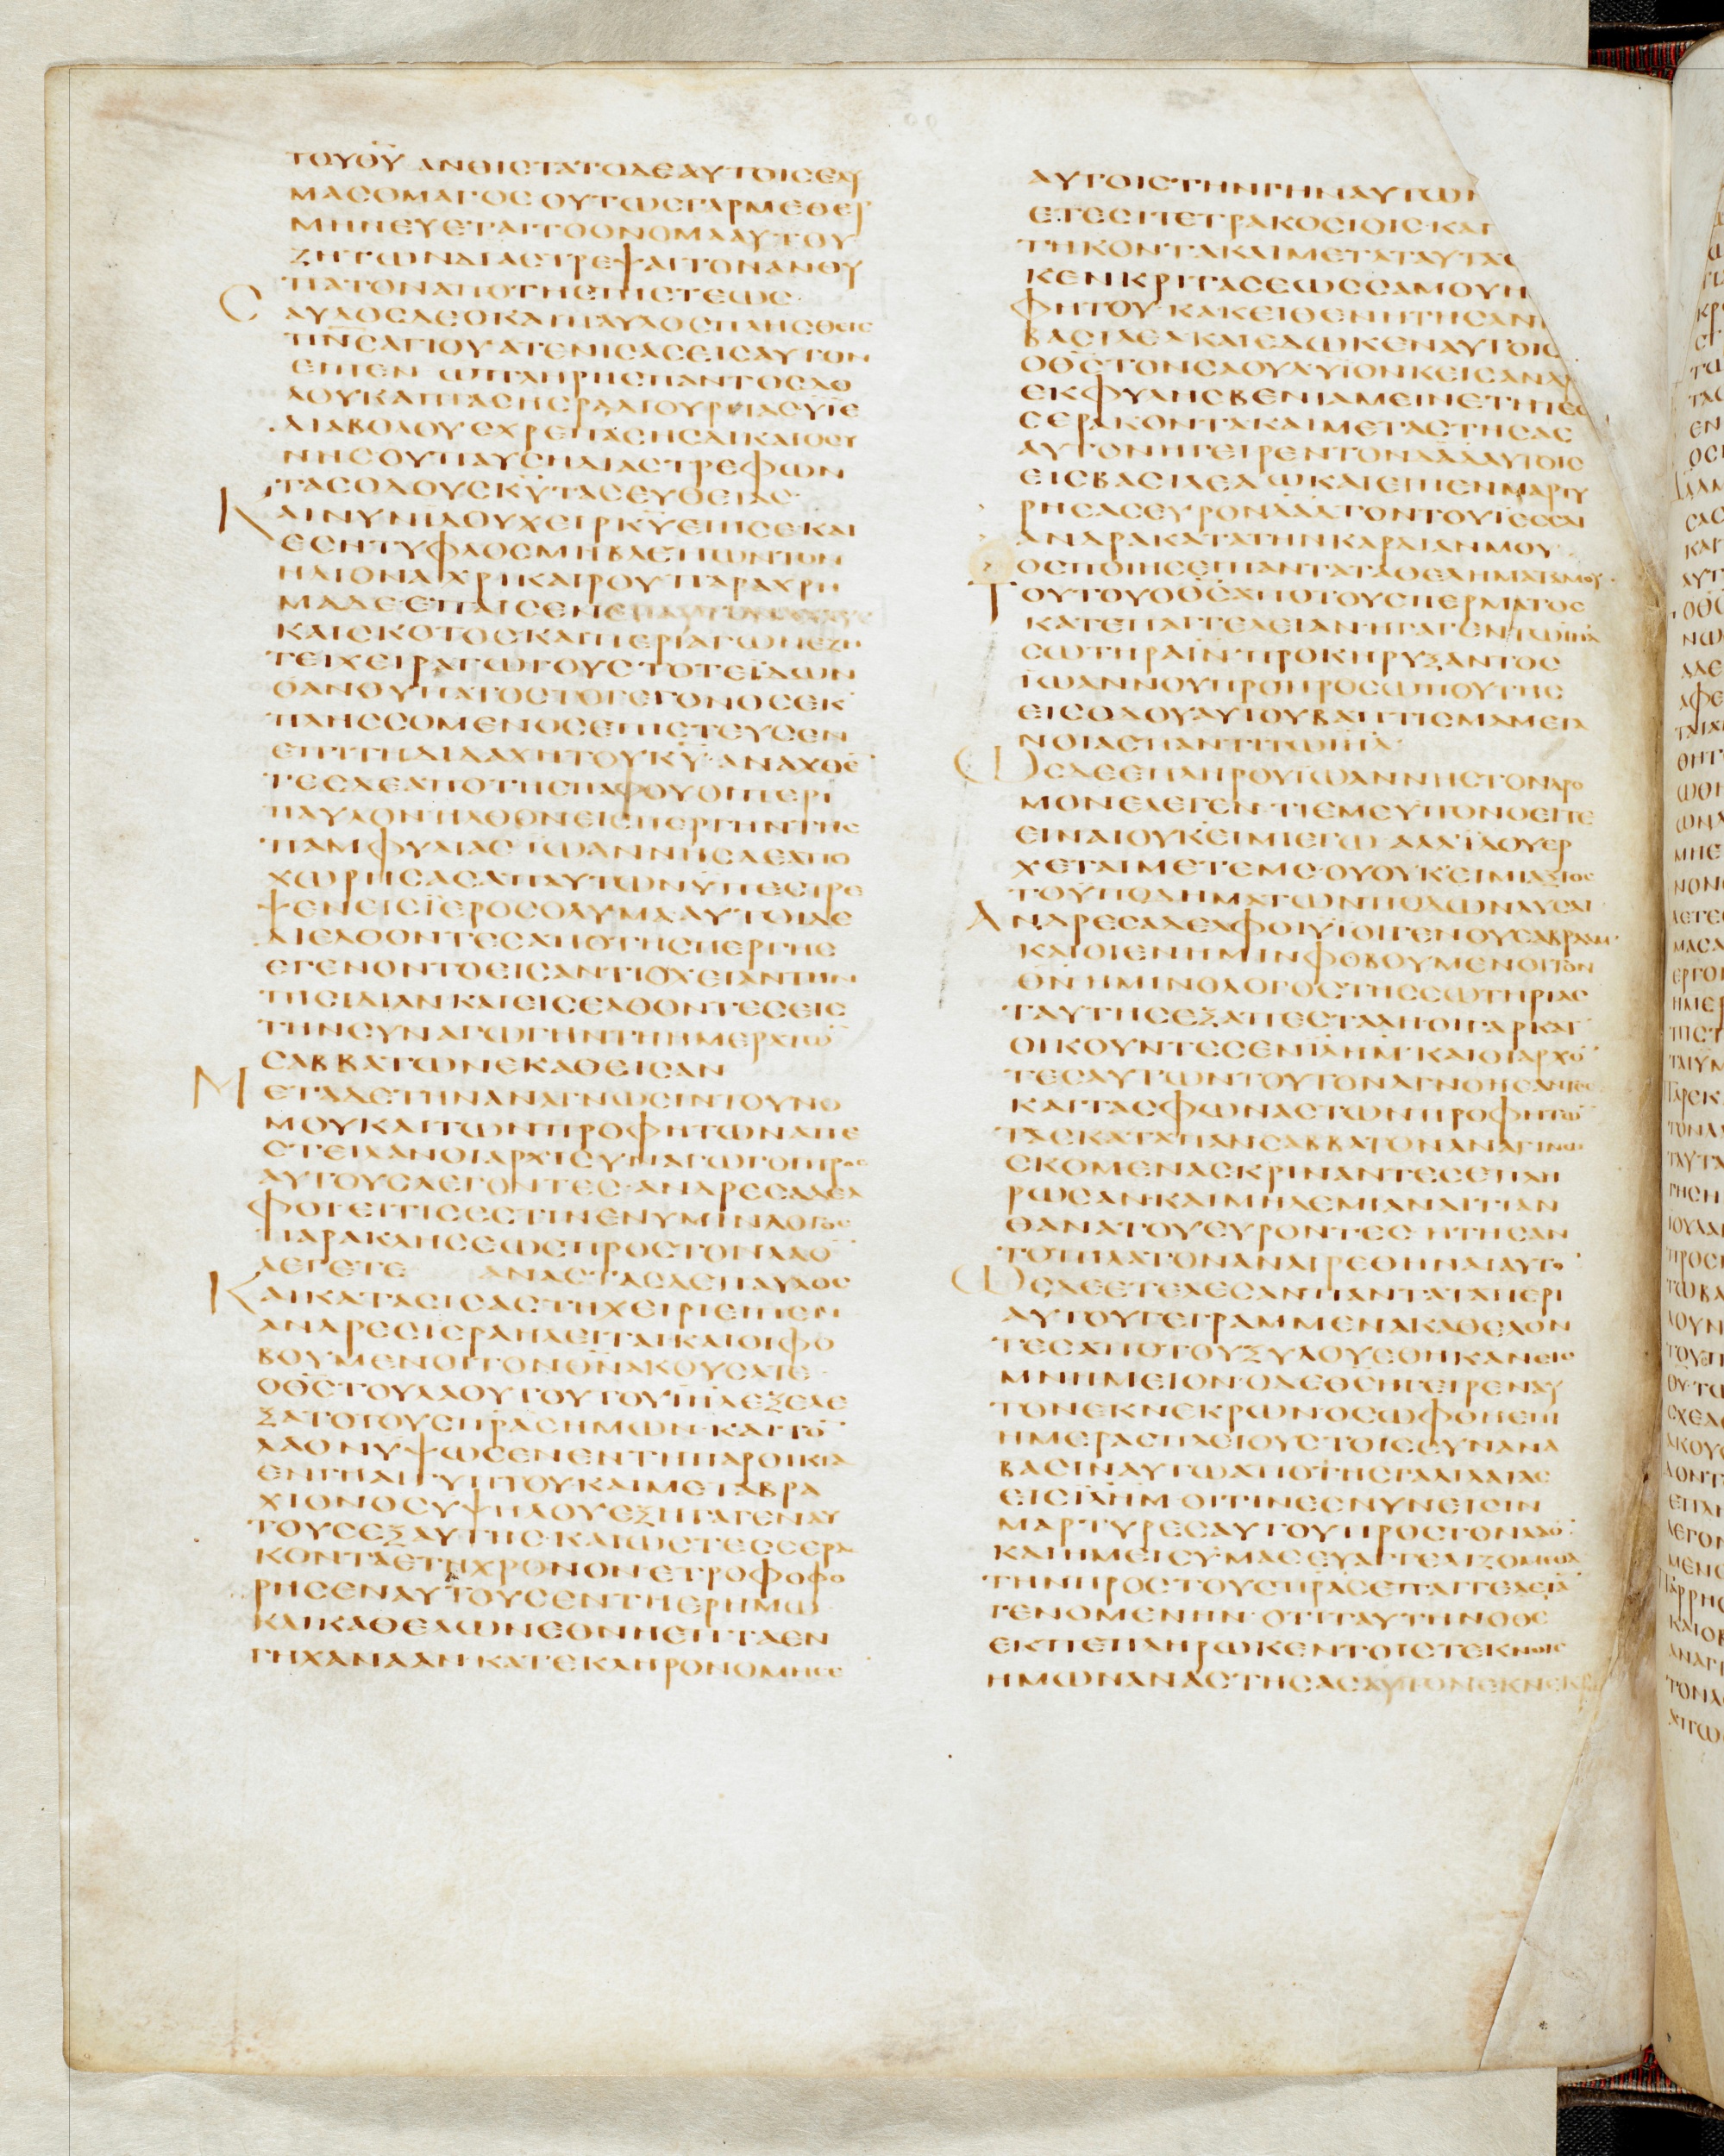 ΤΟΥΘΥ ΑΝΘΙΣΤΑΤΟΔΕΑΥΤΟΙΣΕΛΥ
ΜΑΣΟΜΑΓΟΣ ΟΥΤΩΣΓΑΡΜΕΘΕΡ
ΜΗΝΕΥΕΤΑΙΤΟΟΝΟΜΑΑΥΤΟΥ
ΖΗΤΩΝΔΙΑΣΤΡΕΨΑΙΤΟΝΑΝΘΥ
ΠΑΤΟΝΑΠΟΤΗΣΠΙΣΤΕΩΣ·
ΣΑΥΛΟΣΔΕΟΚΑΙΠΑΥΛΟΣΠΛΗΣΘΕΙΣ
ΠΝΣΑΓΙΟΥΑΤΕΝΙΣΑΣΕΙΣΑΥΤΟΝ
ΕΙΠΕΝ ΩΠΛΗΡΗΣΠΑΝΤΟΣΔΟ
ΛΟΥΚΑΙΠΑΣΗΣΡΑΔΙΟΥΡΓΙΑΣΥΪΕ
ΔΙΑΒΟΛΟΥΕΧΘΡΕΠΑΣΗΣΔΙΚΑΙΟΣΥ
ΝΗΣΟΥΠΑΥΣΗΔΙΑΣΤΡΕΦΩΝ
ΤΑΣΟΔΟΥΣΚΥΤΑΣΕΥΘΕΙΑΣ·
ΚΑΙΝΥΝΙΔΟΥΧΕΙΡΚΥΕΠΙΣΕΚΑΙ
ΕΣΗΤΥΦΛΟΣΜΗΒΛΕΠΩΝΤΟΝ
ΗΛΙΟΝΑΧΡΙΚΑΙΡΟΥ·ΠΑΡΑΧΡΗ
ΜΑΔΕ·ΕΠΕΣΕΝΕΠΑΥΤΟΝΑΧΛΥΣ
ΚΑΙΣΚΟΤΟΣΚΑΙΠΕΡΙΑΓΩΝΕΖΗ
ΤΕΙΧΕΙΡΑΓΩΓΟΥΣ ΤΟΤΕΪΔΩΝ
ΟΑΝΘΥΠΑΤΟΣΤΟΓΕΓΟΝΟΣΕΚ
ΠΛΗΣΣΟΜΕΝΟΣΕΠΙΣΤΕΥΣΕΝ
ΕΠΙΤΗΔΙΔΑΧΗΤΟΥΚΥ·ΑΝΑΧΘΕ
ΤΕΣΔΕΑΠΟΤΗΣΠΑΦΟΥΟΙΠΕΡΙ
ΠΑΥΛΟΝΗΛΘΟΝΕΙΣΠΕΡΓΗΝΤΗΣ
ΠΑΜΦΥΛΙΑΣ·ΙΩΑΝΝΗΣΔΕΑΠΟ
ΧΩΡΗΣΑΣΑΠΑΥΤΩΝΥΠΕΣΤΡΕ
ΨΕΝΕΙΣΪΕΡΟΣΟΛΥΜΑ·ΑΥΤΟΙΔΕ
ΔΙΕΛΘΟΝΤΕΣΑΠΟΤΗΣΠΕΡΓΗΣ
ΕΓΕΝΟΝΤΟΕΙΣΑΝΤΙΟΧΕΙΑΝΤΗΝ
ΠΙΣΙΔΙΑΝΚΑΙΕΙΣΕΛΘΟΝΤΕΣΕΙΣ
ΤΗΝΣΥΝΑΓΩΓΗΝΤΗΗΜΕΡΑΤΩ
ΣΑΒΒΑΤΩΝΕΚΑΘΕΙΣΑΝ
ΜΕΤΑΔΕΤΗΝΑΝΑΓΝΩΣΙΝΤΟΥΝΟ
ΜΟΥΚΑΙΤΩΝΠΡΟΦΗΤΩΝΑΠΕ
ΣΤΕΙΛΑΝΟΙΑΡΧΙΣΥΝΑΓΩΓΟΙΠΡΟΣ
ΑΥΤΟΥΣΛΕΓΟΝΤΕΣ·ΑΝΔΡΕΣΑΔΕΛ
ΦΟΙ·ΕΙΤΙΣΕΣΤΙΝΕΝΥΜΙΝΛΟΓΟΣ
ΠΑΡΑΚΛΗΣΕΩΣΠΡΟΣΤΟΝΛΑΟ
ΛΕΓΕΤΕ ΑΝΑΣΤΑΣΔΕΠΑΥΛΟΣ
ΚΑΙΚΑΤΑΣΙΣΑΣΤΗΧΕΙΡΙΕΙΠΕΝ
ΑΝΔΡΕΣΙΣΡΑΗΛΕΙΤΑΙΚΑΙΟΙΦΟ
ΒΟΥΜΕΝΟΙΤΟΝΘΝΑΚΟΥΣΑΤΕ·
ΟΘΣΤΟΥΛΑΟΥΤΟΥΤΟΥΙΗΛΕΞΕΛΕ
ΞΑΤΟΤΟΥΣΠΡΑΣΗΜΩΝ·ΚΑΙΤΟ
ΛΑΟΝΥΨΩΣΕΝΕΝΤΗΠΑΡΟΙΚΙΑ
ΕΝΓΗΑΙΓΥΠΤΟΥΚΑΙΜΕΤΑΒΡΑ
ΧΙΟΝΟΣΥΨΗΛΟΥΕΞΗΓΑΓΕΝΑΥ
ΤΟΥΣΕΞΑΥΤΗΣ·ΚΑΙΩΣΤΕΣΣΕΡΑ
ΚΟΝΤΑΕΤΗΧΡΟΝΟΝΕΤΡΟΦΟΦΟ
ΡΗΣΕΝΑΥΤΟΥΣΕΝΤΗΕΡΗΜΩ
ΚΑΙΚΑΘΕΛΩΝΕΘΝΗΕΠΤΑΕΝ
ΓΗΧΑΝΑΑΝ·ΚΑΤΕΚΛΗΡΟΝΟΜΗΣΕ
ΑΥΤΟΙΣΤΗΝΓΗΝΑΥΤΩΝ
ΕΤΕΣΙΤΕΤΡΑΚΟΣΙΟΙΣ·ΚΑΙ
ΤΗΚΟΝΤΑΚΑΙΜΕΤΑΤΑΥΤΑΕ
ΚΕΝΚΡΙΤΑΣΕΩΣΣΑΜΟΥΗ
ΦΗΤΟΥ·ΚΑΚΕΙΘΕΝΗΤΗΣΑΝ
ΒΑΣΙΛΕΑ·ΚΑΙΕΔΩΚΕΝΑΥΤΟΙΣ
ΟΘΣΤΟΝΣΑΟΥΛΥΪΟΝΚΕΙΣΑΝΔ
ΕΚΦΥΛΗΣΒΕΝΙΑΜΕΙΝΕΤΗΤΕΣ
ΣΕΡΑΚΟΝΤΑΚΑΙΜΕΤΑΣΤΗΣΑΣ
ΑΥΤΟΝΗΓΕΙΡΕΝΤΟΝΔΑΔΑΥΤΟΙΣ
ΕΙΣΒΑΣΙΛΕΑ ΩΚΑΙΕΙΠΕΝΜΑΡΤΥ
ΡΗΣΑΣΕΥΡΟΝΔΑΔΤΟΝΤΟΥΪΕΣΣΑΙ
ΑΝΔΡΑΚΑΤΑΤΗΝΚΑΡΔΙΑΝΜΟΥ·
ΟΣΠΟΙΗΣΕΙΠΑΝΤΑΤΑΘΕΛΗΜΑΤΑΜΟΥ·
ΤΟΥΤΟΥΟΘΣΑΠΟΤΟΥΣΠΕΡΜΑΤΟΣ
ΚΑΤΕΠΑΓΓΕΛΕΙΑΝ·ΗΓΑΓΕΝΤΩΙΗΛ
ΣΩΤΗΡΑΙΝ·ΠΡΟΚΗΡΥΞΑΝΤΟΣ
ΪΩΑΝΝΟΥΠΡΟΠΡΟΣΩΠΟΥΤΗΣ
ΕΙΣΟΔΟΥΑΥΤΟΥΒΑΠΤΙΣΜΑΜΕΤΑ
ΝΟΙΑΣΠΑΝΤΙΤΩΙΗΛ·
ΩΣΔΕΕΠΛΗΡΟΥΪΩΑΝΝΗΣΤΟΝΔΡΟ
ΜΟΝΕΛΕΓΕΝ·ΤΙΕΜΕΥΠΟΝΟΕΙΤΕ
ΕΙΝΑΙΟΥΚΕΙΜΙΕΓΩ·ΑΛΛ'ΪΔΟΥΕΡ
ΧΕΤΑΙΜΕΤΕΜΕ·ΟΥΟΥΚ'ΕΙΜΙΑΞΙΟΣ
ΤΟΫΠΟΔΗΜΑΤΩΝΠΟΔΩΝΛΥΣΑΙ
ΑΝΔΡΕΣΑΔΕΛΦΟΙΥΪΟΙΓΕΝΟΥΣΑΒΡΑΑΜ·
ΚΑΙΟΙΕΝΗΜΙΝΦΟΒΟΥΜΕΝΟΙΤΟΝ
ΘΝ·ΗΜΙΝΟΛΟΓΟΣΤΗΣΣΩΤΗΡΙΑΣ
ΤΑΥΤΗΣΕΞΑΠΕΣΤΑΛΗΟΙΓΑΡΚΑΤ
ΟΙΚΟΥΝΤΕΣΕΝΙΛΗΜ·ΚΑΙΟΙΑΡΧΟ
ΤΕΣΑΥΤΩΝΤΟΥΤΟΝΑΓΝΟΗΣΑΝΤΕΣ
ΚΑΙΤΑΣΦΩΝΑΣΤΩΝΠΡΟΦΗΤΩ
ΤΑΣΚΑΤΑΠΑΝΣΑΒΒΑΤΟΝΑΝΑΓΙΝΩ
ΣΚΟΜΕΝΑΣΚΡΙΝΑΝΤΕΣΕΠΛΗ
ΡΩΣΑΝ·ΚΑΙΜΗΔΕΜΙΑΝΑΙΤΙΑΝ
ΘΑΝΑΤΟΥΕΥΡΟΝΤΕΣ·ΗΤΗΣΑΝ
ΤΟΠΙΛΑΤΟΝΑΝΑΙΡΕΘΗΝΑΙΑΥΤΟ
ΩΣΔΕΕΤΕΛΕΣΑΝΠΑΝΤΑΤΑΠΕΡΙ
ΑΥΤΟΥΓΕΓΡΑΜΜΕΝΑΚΑΘΕΛΟΝ
ΤΕΣΑΠΟΤΟΥΞΥΛΟΥΕΘΗΚΑΝΕΙΣ
ΜΝΗΜΕΙΟΝ·ΟΔΕΘΣΗΓΕΙΡΕΝΑΥ
ΤΟΝΕΚΝΕΚΡΩΝ·ΟΣΩΦΘΗΕΠΙ
ΗΜΕΡΑΣΠΛΕΙΟΥΣΤΟΙΣΣΥΝΑΝΑ
ΒΑΣΙΝΑΥΤΩΑΠΟΤΗΣΓΑΛΙΛΑΙΑΣ
ΕΙΣΙΛΗΜ·ΟΙΤΙΝΕΣΝΥΝΕΙΣΙΝ
ΜΑΡΤΥΡΕΣΑΥΤΟΥΠΡΟΣΤΟΝΛΑΟ·
ΚΑΙΗΜΕΙΣΥΜΑΣΕΥΑΓΓΕΛΙΖΟΜΕΘΑ
ΤΗΝΠΡΟΣΤΟΥΣΠΡΑΣΕΠΑΓΓΕΛΕΙΑ
ΓΕΝΟΜΕΝΗΝ·ΟΤΙΤΑΥΤΗΝΟΘΣ
ΕΚΠΕΠΛΗΡΩΚΕΝΤΟΙΣΤΕΚΝΟΙΣ
ΗΜΩΝΑΝΑΣΤΗΣΑΣΑΥΤΟΝΕΚΝΕΚΡ